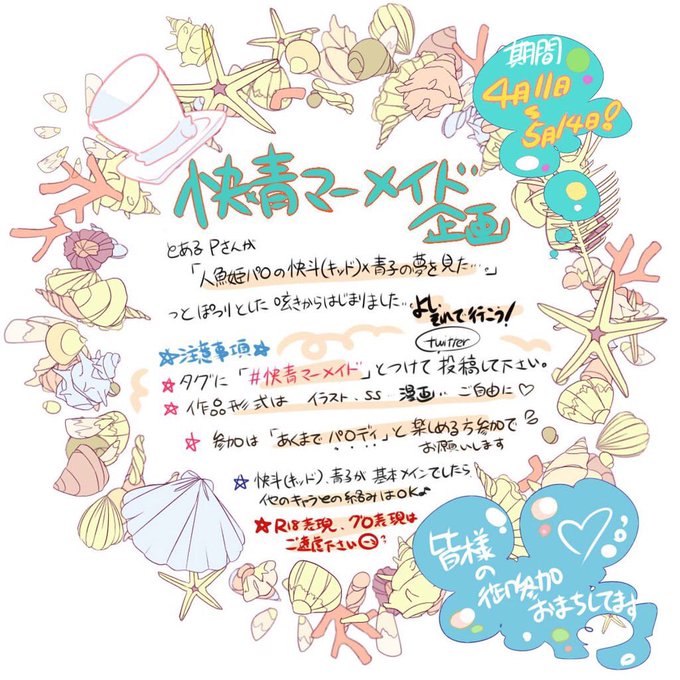 期間
4月11日
〜
5月14日!
快青マーメイド
企画
とあるPさんが
「人魚姫パロの快斗(キッド)×青子の夢を見た…。」
っとぽつりとした呟きからはじまりました…よし、それで行こう!
twitter
☆注意事項☆
☆タグに「#快青マーメイド」とつけて投稿して下さい。
☆作品形式は イラスト、SS、漫画… ご自由に♡
☆参加は「あくまでパロディ」と楽しめる方参加で
お願いします
☆快斗(キッド)、青子が基本メインでしたら
他のキャラとの絡みはOK♪
☆R18表現、グロ表現は
ご遠慮下さい
皆様
の
御参加
おまちしてます